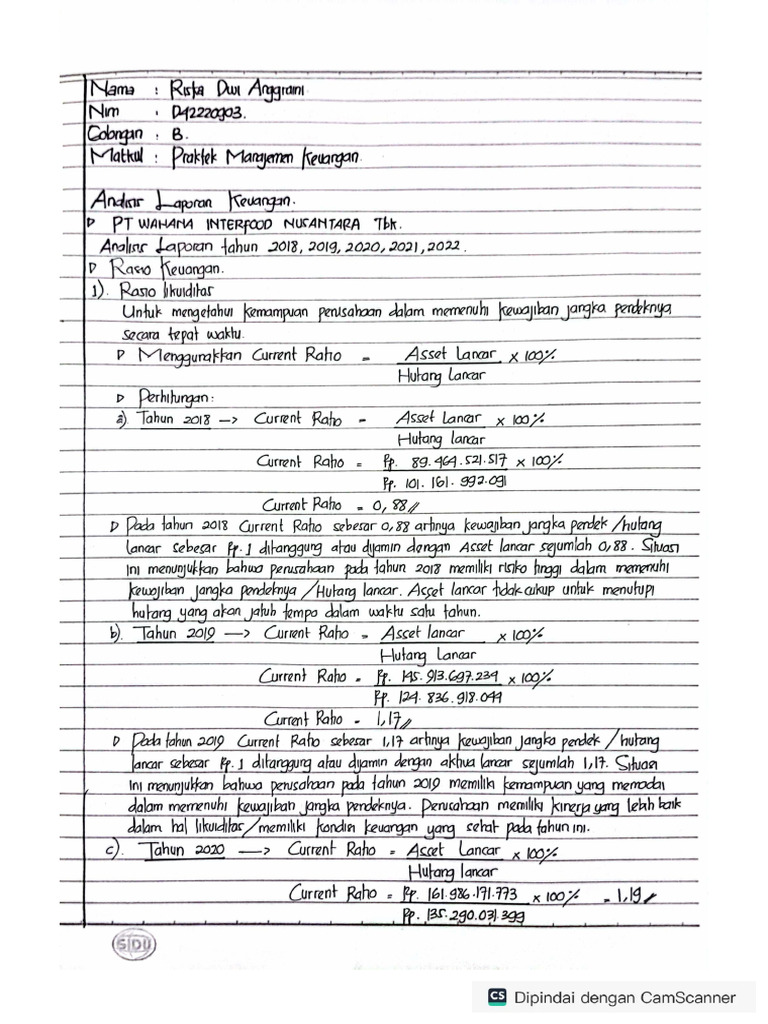 Nama : Riska Dwi Anggraini
Nim : D42220903.
Gabungan : B.
Matkul : Praktek Manajemen Keuangan.
Analisis Laporan Keuangan.
▷ PT WAHANA INTERFOOD NUSANTARA Tbk.
Analisis Laporan tahun 2018, 2019, 2020, 2021, 2022.
▷ Rasio Keuangan.
1). Rasio likuiditas
Untuk mengetahui kemampuan perusahaan dalam memenuhi kewajiban jangka pendeknya
secara tepat waktu.
▷ Menggunakan Current Ratio = Asset Lancar x 100%
Hutang Lancar
▷ Perhitungan:
a). Tahun 2018 --> Current Ratio = Asset Lancar x 100%
Hutang lancar
Current Ratio = Rp. 89.464.521.517 x 100%
Rp. 101.161.992.091
Current Ratio = 0,88//
▷ Pada tahun 2018 Current Ratio sebesar 0,88 artinya kewajiban jangka pendek/hutang
lancar sebesar Rp.1 ditanggung atau dijamin dengan Asset lancar sejumlah 0,88. Situasi
ini menunjukkan bahwa perusahaan pada tahun 2018 memiliki risiko tinggi dalam memenuhi
kewajiban jangka pendeknya/Hutang lancar. Asset lancar tidak cukup untuk menutupi
hutang yang akan jatuh tempo dalam waktu satu tahun.
b). Tahun 2019 --> Current Ratio = Asset lancar x 100%
Hutang Lancar
Current Ratio = Rp. 145.913.697.234 x 100%
Rp. 124.836.918.044
Current Ratio = 1,17//
▷ Pada tahun 2019 Current Ratio sebesar 1,17 artinya kewajiban jangka pendek/hutang
lancar sebesar Rp.1 ditanggung atau dijamin dengan aktiva lancar sejumlah 1,17. Situasi
ini menunjukkan bahwa perusahaan pada tahun 2019 memiliki kemampuan yang memadai
dalam memenuhi kewajiban jangka pendeknya. Perusahaan memiliki kinerja yang lebih baik
dalam hal likuiditas/memiliki kondisi keuangan yang sehat pada tahun ini.
c). Tahun 2020 --> Current Ratio = Asset Lancar x 100%
Hutang lancar
Current Ratio = Rp. 161.986.171.773 x 100% = 1,19//
Rp. 135.290.031.399
SIDU
CS Dipindai dengan CamScanner